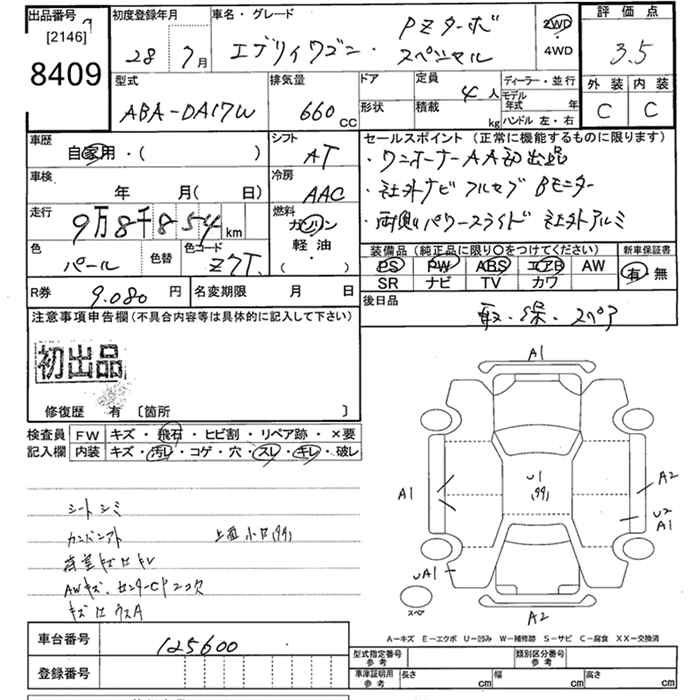 出品番号 [2146] 8409
初度登録年月 28 7月
車名・グレード エブリィワゴン・PZターボ スペシャル
2WD 4WD
評価点 3.5
外装 内装
C C
型式 ABA-DA17W
排気量 660 CC
ドア 形状
定員 4人
積載 kg
ディーラー・並行
モデル年式 年
ハンドル 左・右
車歴 自家用・( )
シフト AT
車検 年 月(日)
冷房 AAC
走行 9万8千854 km
燃料 ガソリン 軽油・( )
色 パール 色替 色コード Z7T
セールスポイント (正常に機能するものに限ります)
・ワンオーナーAA初出品
・社外ナビ フルセグ Bモニター
・両側パワースライド 社外アルミ
装備品 (純正品に限り〇をつけてください) 新車保証書
PS PW ABS エアB AW 有・無
SR ナビ TV カワ
R券 9.080 円 名変期限 月 日
後日品 取・保・スペア
注意事項申告欄 (不具合内容等は具体的に記入して下さい)
初出品
修復歴 有 〔箇所 〕
検査員 FW キズ・飛石・ヒビ割・リペア跡・×要
記入欄 内装 キズ・汚レ・コゲ・穴・スレ・キレ・破レ
シートシミ
上面小凹(99)
AWキズ
A1
U1 (99)
A1
A2
U2 A1
UA1
スペア
A2
A-キズ E-エクボ U-凹み W-補修跡 S-サビ C-腐食 XX-交換済
車台番号 125600
登録番号
型式指定番号 参考 類別区分番号 参考
車庫証明用 参考 長さ cm 幅 cm 高さ cm